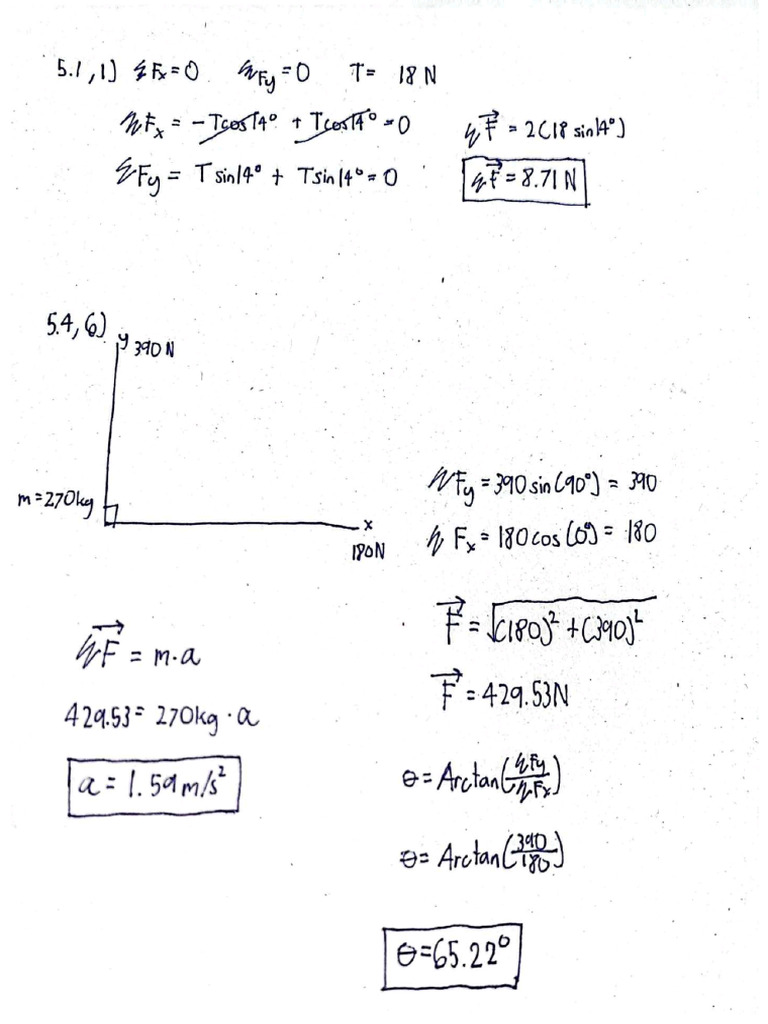 5.1,1) ΣFx=0 ΣFy=0 T= 18 N
ΣFx = -Tcos14° + Tcos14° = 0
ΣFy = T sin14° + Tsin14° = 0
ΣF⃗ = 2(18 sin14°)
ΣF⃗ = 8.71 N
5.4, 6)
y 390 N
m=270kg
x
180N
ΣFy = 390 sin(90°) = 390
ΣFx = 180 cos(0°) = 180
F⃗ = √(180)² + (390)²
F⃗ = 429.53N
ΣF⃗ = m·a
429.53 = 270kg · a
a = 1.59 m/s²
θ = Arctan(ΣFy/ΣFx)
θ = Arctan(390/180)
θ=65.22°